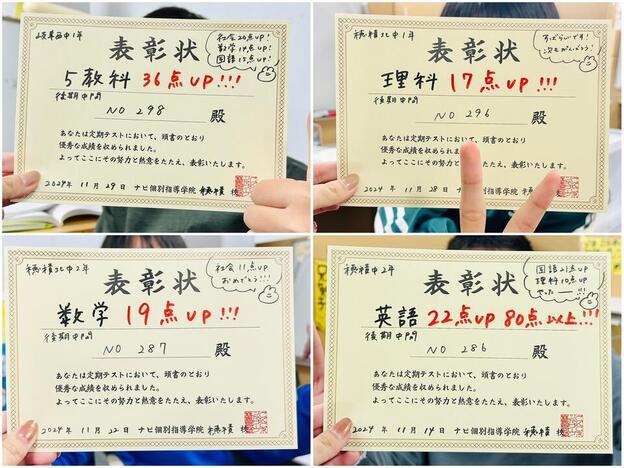 岐阜西中1年
社会20点UP!
数学19点UP!
国語15点UP!
表彰状
5教科 36点UP!!!
後期中間
NO 298 殿
あなたは定期テストにおいて、頭書のとおり
優秀な成績を収められました。
よってここにその努力と熱意をたたえ、表彰いたします。
2024年 11月 29日 ナビ個別指導学院 穂積 校
穂積北中1年
すばらしいです!
次もがんばろう!
表彰状
理科 17点UP!!!
後期中間
NO 296 殿
あなたは定期テストにおいて、頭書のとおり
優秀な成績を収められました。
よってここにその努力と熱意をたたえ、表彰いたします。
2024年 11月 28日 ナビ個別指導学院 穂積 校
穂積北中2年
社会11点UP
おめでとう!!
表彰状
数学 19点UP!!!
後期中間
NO 287 殿
あなたは定期テストにおいて、頭書のとおり
優秀な成績を収められました。
よってここにその努力と熱意をたたえ、表彰いたします。
2024年 11月 22日 ナビ個別指導学院 穂積 校
穂積中2年
国語21点UP
理科10点UP
やったー!!!
表彰状
英語 22点UP 80点以上!!!
後期中間
NO 286 殿
あなたは定期テストにおいて、頭書のとおり
優秀な成績を収められました。
よってここにその努力と熱意をたたえ、表彰いたします。
2024年 11月 14日 ナビ個別指導学院 穂積 校